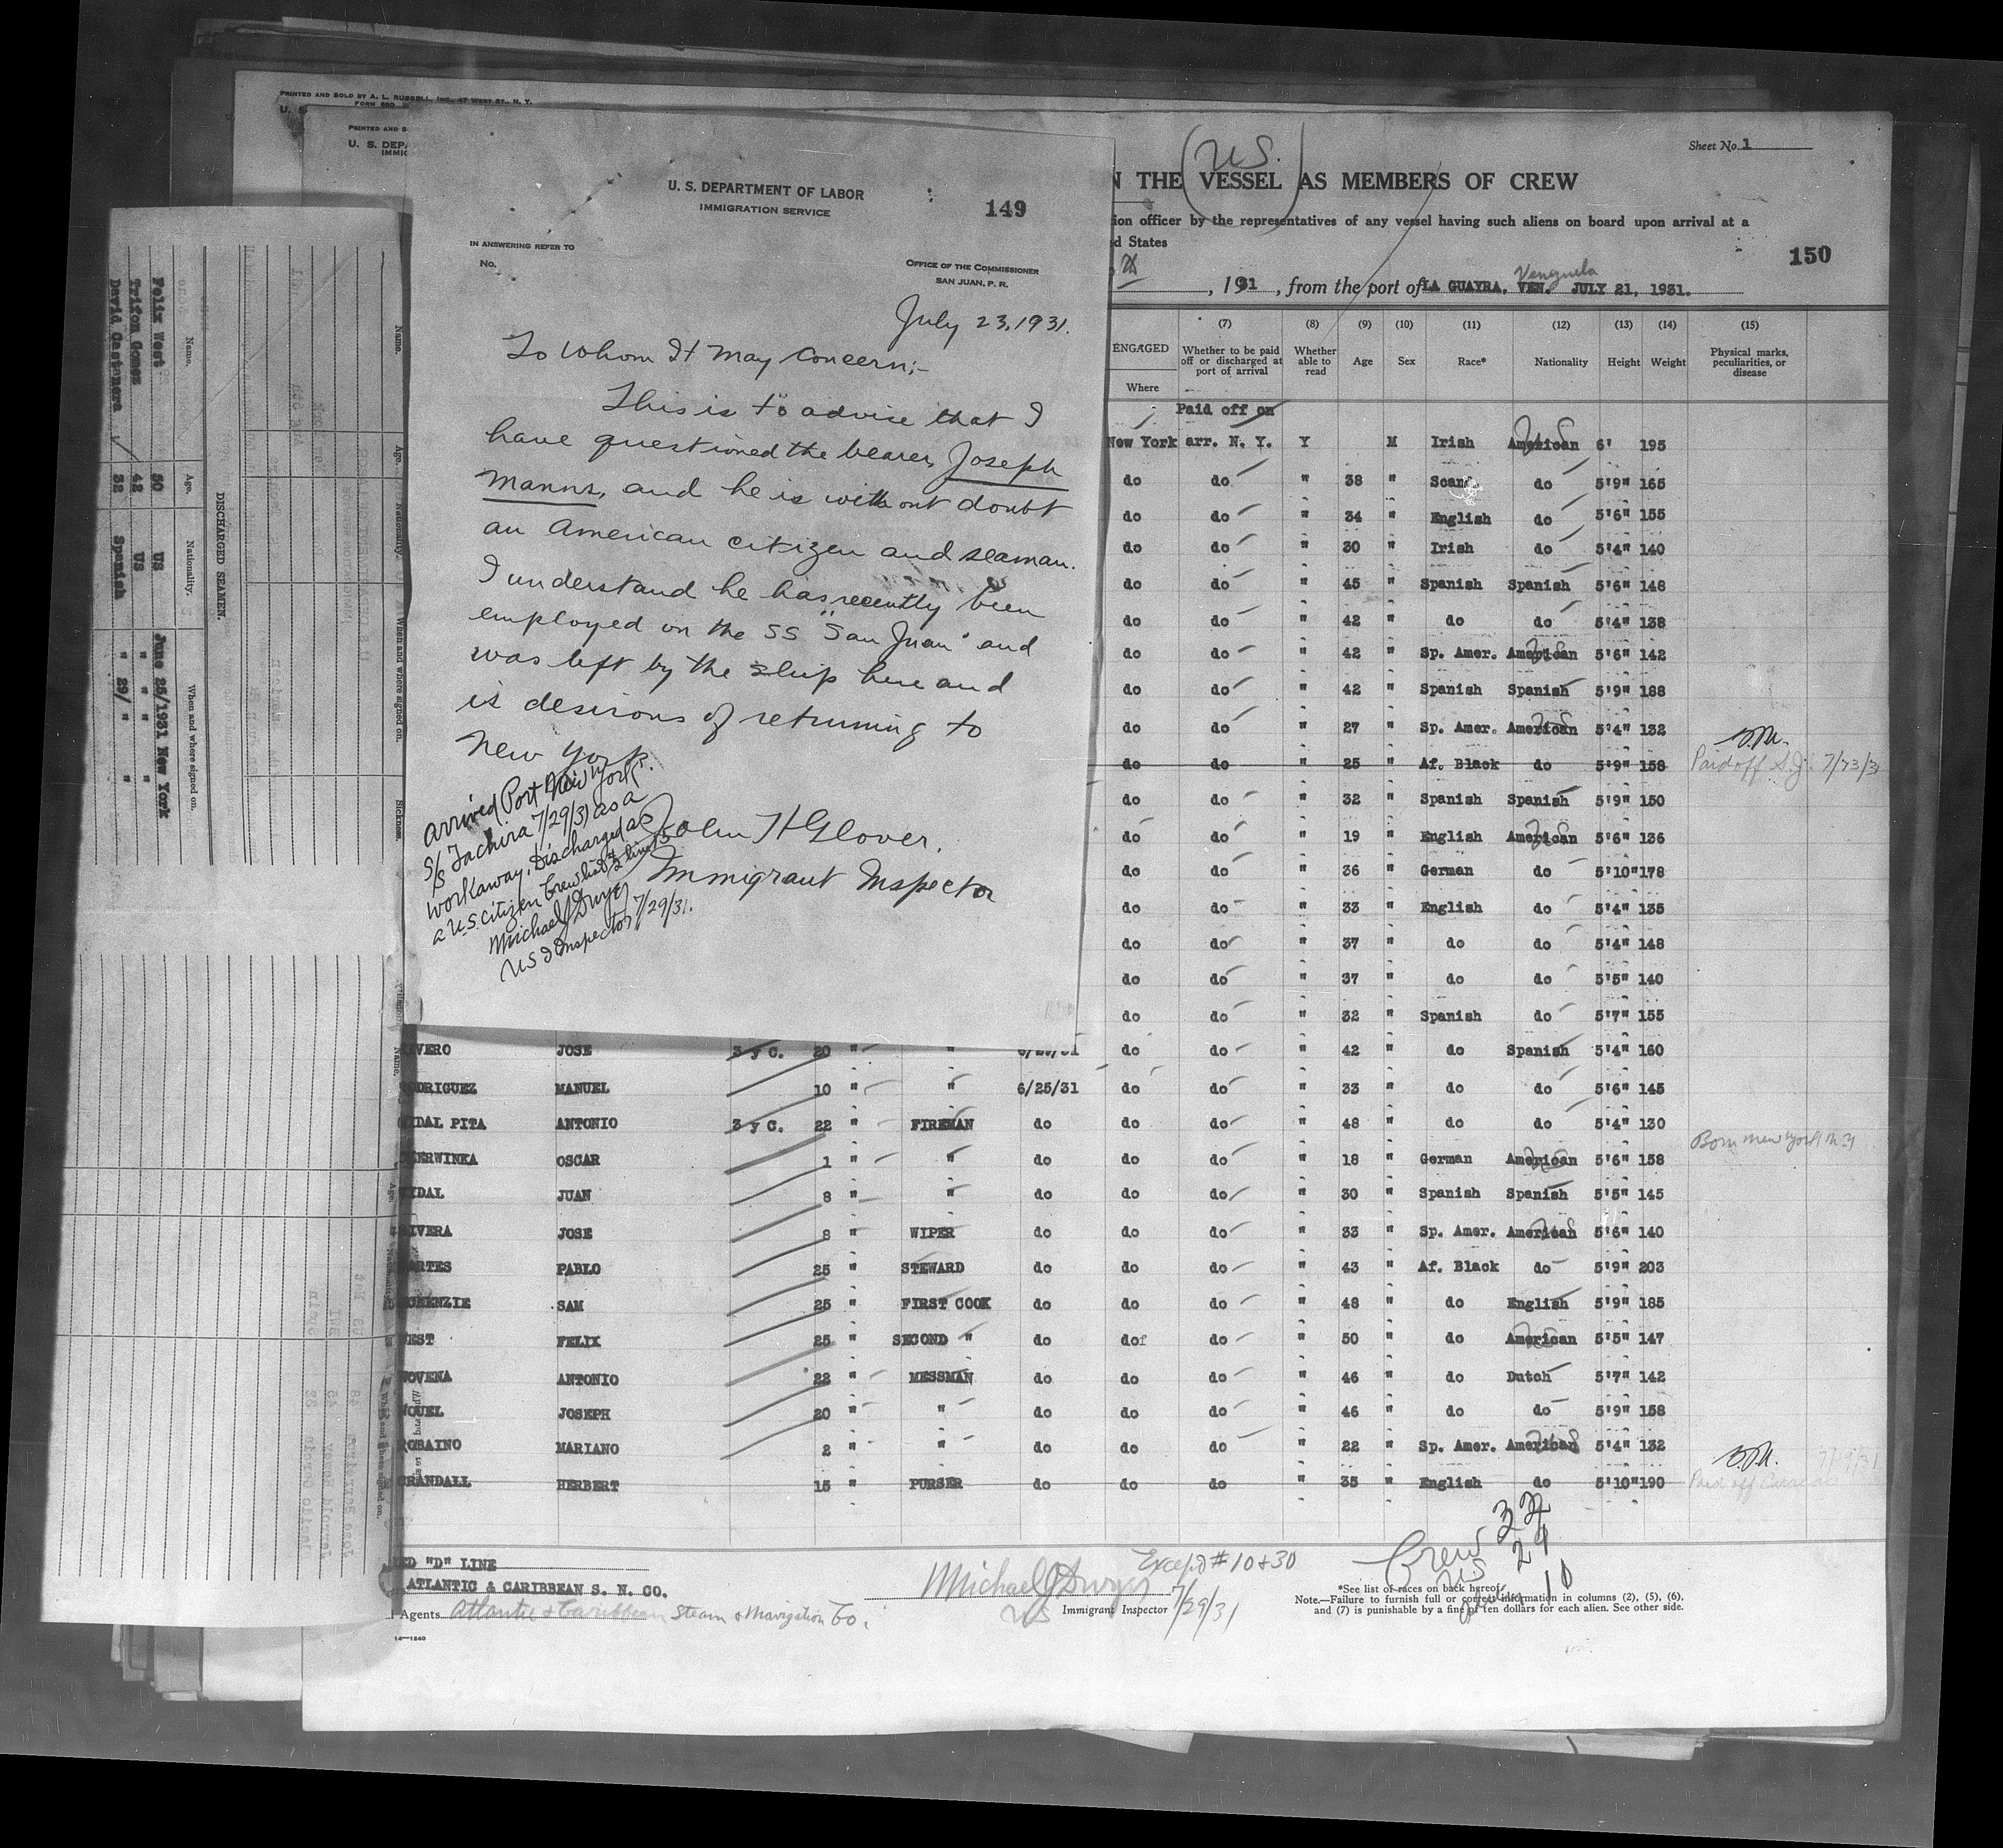 PRINTED AND SOLD BY A. L. RUSSELL, INC., 47 WEST ST., N. Y.
FORM 680
U. S.
PRINTED AND S
U. S. DEPA
IMMIG
U. S. DEPARTMENT OF LABOR
IMMIGRATION SERVICE
149
IN ANSWERING REFER TO
No.
OFFICE OF THE COMMISSIONER
SAN JUAN, P. R.
July 23, 1931.
To Whom It May Concern:-
This is to advise that I
have questioned the bearer, Joseph
Manns, and he is without doubt
an American citizen and seaman.
I understand he has recently been
employed on the SS "San Juan" and
was left by the ship here and
is desirous of returning to
New York.
John H Glover.
Immigrant Inspector
arrived Port New York
S/S Tachira 7/29/31 as a
workaway. Discharged as
a U.S. citizen Crew list
Michael J Dwyer
US I Inspector 7/29/31.
DISCHARGED SEAMEN.
Name. Age. Nationality. When and where signed on.
Felix West 50 US June 25/1931 New York
Trifon Gomez 42 US " " " "
David Castanera 32 Spanish " 29/ " "
Sheet No. 1
(U.S.)
N THE VESSEL AS MEMBERS OF CREW
ion officer by the representatives of any vessel having such aliens on board upon arrival at a
d States
150
, 1931, from the port of LA GUAYRA, VEN. JULY 21, 1931.
ENGAGED
Where
(7) Whether to be paid off or discharged at port of arrival
(8) Whether able to read
(9) Age
(10) Sex
(11) Race*
(12) Nationality
(13) Height
(14) Weight
(15) Physical marks, peculiarities, or disease
Paid off on
New York arr. N. Y. Y M Irish American 6' 195
do do " 38 " Scand do 5'9" 165
do do " 34 " English do 5'6" 155
do do " 30 " Irish do 5'4" 140
do do " 45 " Spanish Spanish 5'6" 148
do do " 42 " do do 5'4" 138
do do " 42 " Sp. Amer. American 5'6" 142
do do " 42 " Spanish Spanish 5'9" 188
do do " 27 " Sp. Amer. American 5'4" 132
do do " 25 " Af. Black do 5'9" 158 Paid off S.J. 7/23/31
do do " 32 " Spanish Spanish 5'9" 150
do do " 19 " English American 5'6" 136
do do " 36 " German do 5'10" 178
do do " 33 " English do 5'4" 135
do do " 37 " do do 5'4" 148
do do " 37 " do do 5'5" 140
do do " 32 " Spanish do 5'7" 155
IVERO JOSE 3 y C. 20 " " do do " 42 " do Spanish 5'4" 160
ODRIGUEZ MANUEL 10 " " 6/25/31 do do " 33 " do do 5'6" 145
IDAL PITA ANTONIO 3 y C. 22 " FIREMAN do do do " 48 " do do 5'4" 130
ERWINKA OSCAR 1 " " do do do " 18 " German American 5'6" 158 Born New York N.Y
IDAL JUAN 8 " " do do do " 30 " Spanish Spanish 5'5" 145
IVERA JOSE 8 " WIPER do do do " 33 " Sp. Amer. American 5'6" 140
ARTES PABLO 25 " STEWARD do do do " 43 " Af. Black do 5'9" 203
KENZIE SAM 25 " FIRST COOK do do do " 48 " do English 5'9" 185
WEST FELIX 25 " SECOND " do do do " 50 " do American 5'5" 147
OVENA ANTONIO 22 " MESSMAN do do do " 46 " do Dutch 5'7" 142
OUEL JOSEPH 20 " " do do do " 46 " do do 5'9" 158
ROSAINO MARIANO 2 " " do do do " 22 " Sp. Amer. American 5'4" 132
CRANDALL HERBERT 15 " PURSER do do do " 35 " English do 5'10" 190 Paid off
RED "D" LINE
ATLANTIC & CARIBBEAN S. N. CO.
Agents Atlantic & Caribbean Steam & Navigation Co.
Except #10 & 30
Michael J Dwyer
US Immigrant Inspector 7/29/31
Crew
US
10
*See list of races on back hereof.
Note.—Failure to furnish full or correct information in columns (2), (5), (6),
and (7) is punishable by a fine of ten dollars for each alien. See other side.
14—1240